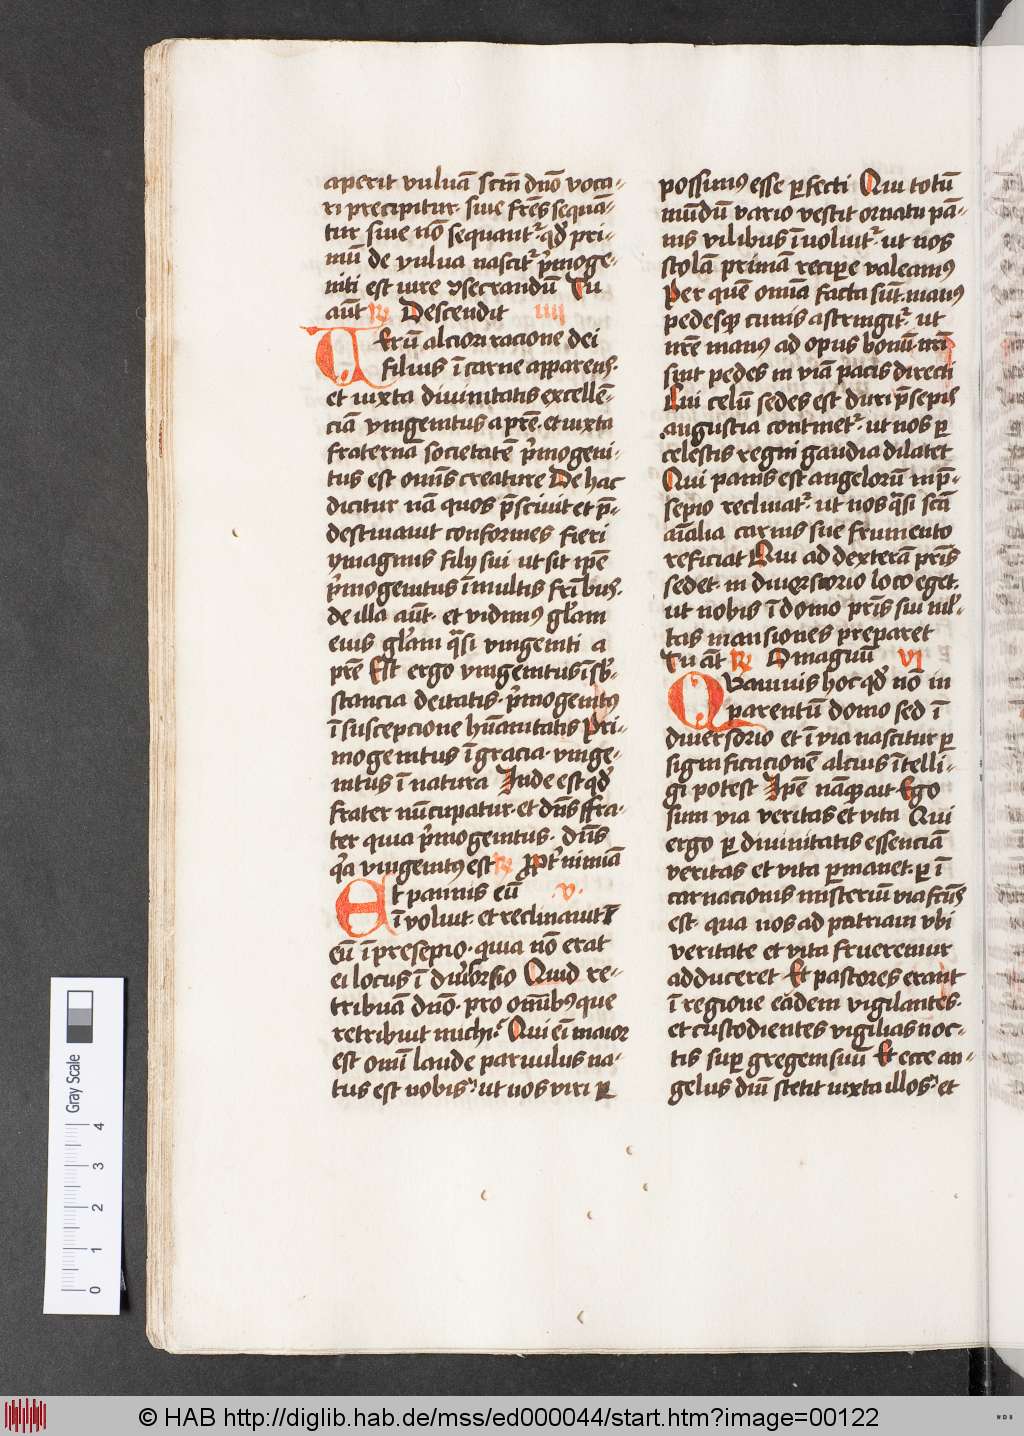 aperit vuluā scm̄ dn̄o voca-
ri precipitur. siue frēs sequā-
tur siue nō sequant᷑ qd̄ pri-
mū de vulua nascit᷑ p̄moge-
niti est iure ↄsecrandū Tu
aūt R̄ Descendit iiii
Uerū alciori racione dei
filius ī carne apparens.
et iuxta diuinitatis excellē-
ciā vnigenitus a pr̄e. et iuxta
fraternā societatē p̄mogeni-
tus est om̄is creature De hac
dicitur nā quos p̄sciuit et p̄-
destinauit conformes fieri
ymaginis filij sui ut sit ip̄e
p̄mogenitus ī multis frībus.
de illa aūt. et vidimus gl̄am
eius gl̄am q̄si vnigeniti a
pr̄e Est ergo vnigenitus ī sb̄-
stancia deitatis. p̄mogenitus
ī suscepcione hūanitatis Pri-
mogenitus ī gracia. vnige-
nitus ī natura Inde est qd̄
frater nūcupatur. et dn̄s ffra-
ter quia p̄mogenitus. dn̄s
q̄a vnigenitus est R̄ Ppt᷑ nimiā
Et pannis eū v.
īvoluit. et reclinauit
eū ī presepio. quia nō erat
ei locus ī diu̾sorio Quid re-
tribuā dn̄o. pro om̄ibus que
retribuit michi. Qui eī maior
est om̄i laude paruulus na-
tus est nobis. ut nos viri ꝑ
possimus esse ꝑfecti Qui totū
mūdū vario vestit ornatu pā-
nis vilibus īuoluit᷑. ut nos
stolā primā reciꝑe valeamus
Per quē omīa facta sūt. manus
pedesq̨ cunis astringit᷑. ut
nr̄e manus ad opus bonū. nr̄i
sint pedes in viā pacis directi
Cui celū sedes est duri p̄sepis
angustia continet᷑. ut nos ꝑ
celestis regni gaudia dilatet
Qui panis est angelorū in p̄-
sepio reclinat᷑. ut nos q̄si scā
aīalia carnis sue frumento
reficiat Qui ad dexterā pr̄is
sedet. in diuersorio loco eget.
ut nobis ī domo pr̄is sui ml̄-
tas mansiones preparet
Tu aūt R̄ O magnū vi
Quamuis hoc qd̄ nō in
parentū domo sed ī
diuersorio et ī via nascitur ꝑ
significacionē alcius ītelli-
gi potest Ip̄e nāq̨ ait. Ego
sum via veritas et vita Qui
ergo ꝑ diuinitatis essenciā
veritas et vita ꝑmanet. ꝑ ī
carnacionis misteriū via fc̄us
est. qua nos ad patriam vbi
veritate et vita frueremur
adduceret Et pastores erant
ī regione eādem vigilantes.
et custodientes vigilias noc-
tis suꝑ gregem suū Et ecce an-
gelus dn̄i stetit iuxta illos. et
Gray Scale
4
3
2
1
0
© HAB http://diglib.hab.de/mss/ed000044/start.htm?image=00122